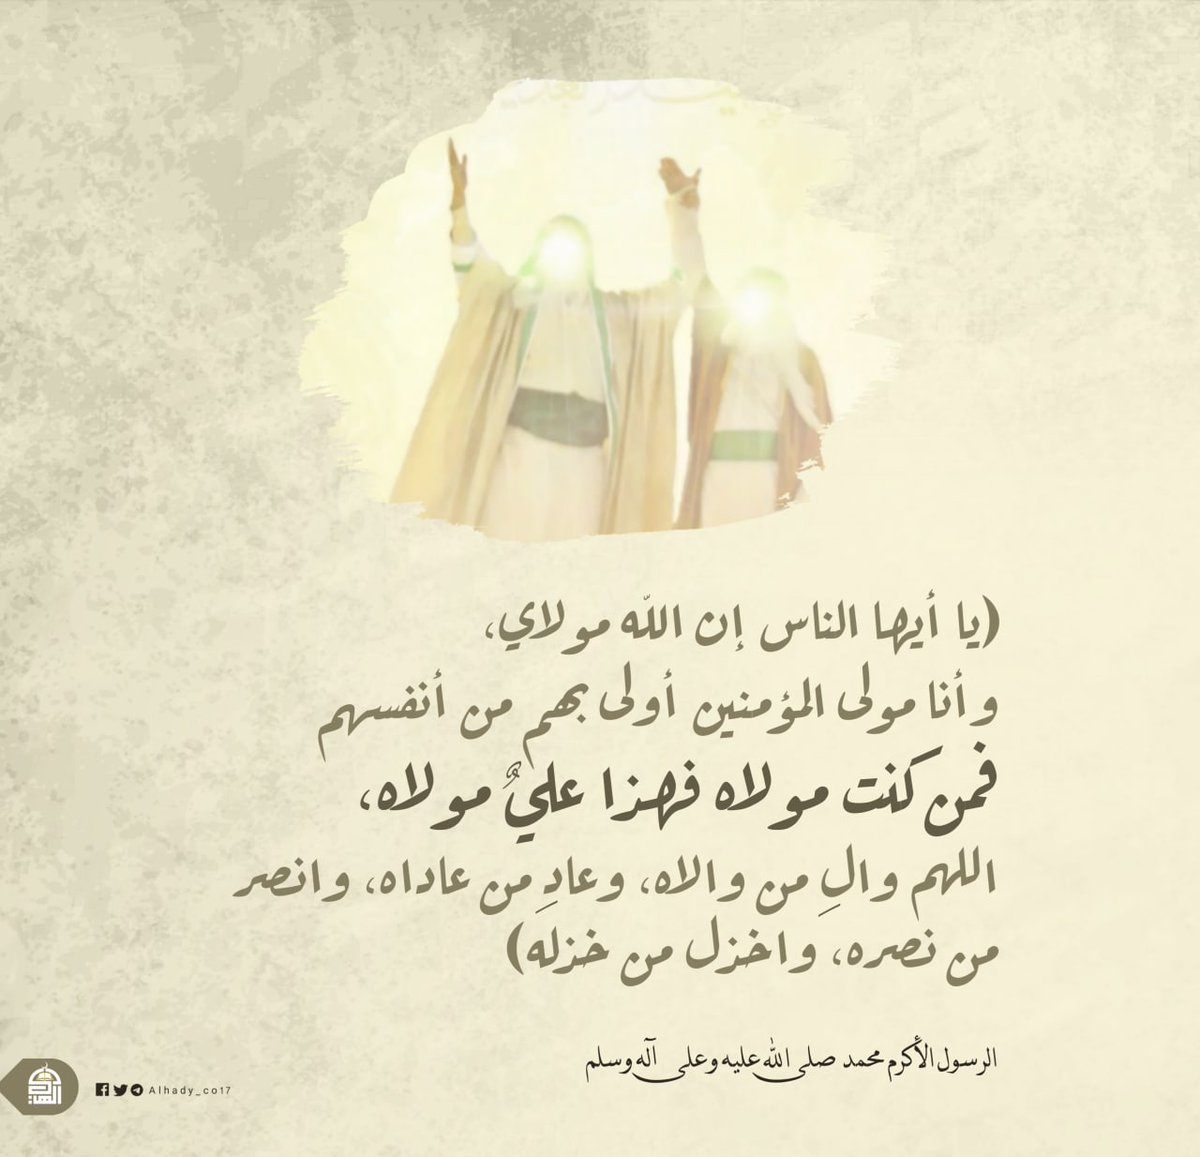 (يا أيها الناس إن اللّه مولاي،
وأنا مولى المؤمنين أولى بهم من أنفسهم
فمن كنت مولاه فهذا عليٌ مولاه،
اللهم والِ من والاه، وعادِ من عاداه، وانصر
من نصره، واخزل من خزله)
الرسول الأكرم محمد صلى الله عليه وعلى آله وسلم
Alhady_co17